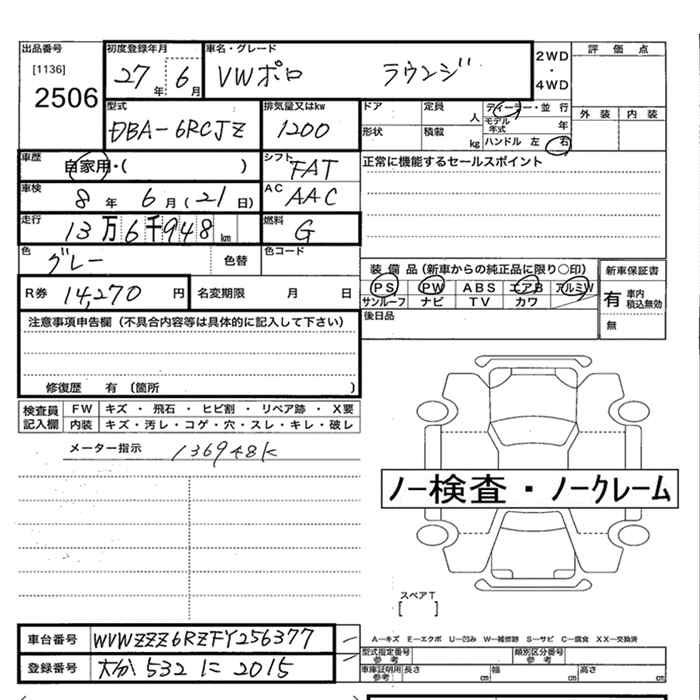 出品番号 初度登録年月 車名・グレード 2WD 評価点
[1136] 27年 6月 VWポロ ラウンジ ・
2506 4WD
型式 排気量又はkw ドア 定員 人 ディーラー・並行 外装 内装
DBA-6RCJZ 1200 モデル年式 年
形状 積載 kg ハンドル 左 右
車歴 自家用・( ) シフト FAT 正常に機能するセールスポイント
車検 8年 6月(21日) AC AAC
走行 13万6千948km 燃料 G
色 グレー 色替 色コード
装備品(新車からの純正品に限り○印) 新車保証書
R券 14,270円 名変期限 月 日 PS PW ABS エアB アルミW 有 車内積込無効
サンルーフ ナビ TV カワ 無
注意事項申告欄(不具合内容等は具体的に記入して下さい) 後日品
修復歴 有(箇所 )
検査員記入欄 FW キズ・飛石・ヒビ割・リペア跡・X要
内装 キズ・汚レ・コゲ・穴・スレ・キレ・破レ
メーター指示 136948K
ノー検査・ノークレーム
スペアT
[ ]
車台番号 WVWZZZ6RZFY256377 A−キズ E−エクボ U−凹み W−補修跡 S−サビ C−腐食 XX−交換済
型式指定番号 参考 類別区分番号 参考
登録番号 大分 532 に 2015 車庫証明用参考 長さ cm 幅 cm 高さ cm